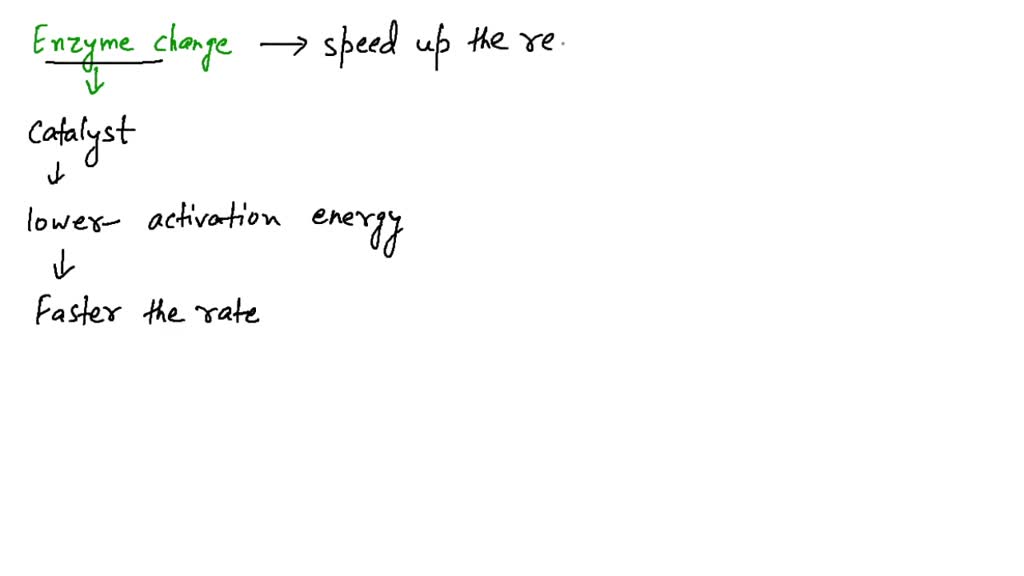 Enzyme change → speed up the re.
↓
Catalyst
↓
lower activation energy
↓
Faster the rate